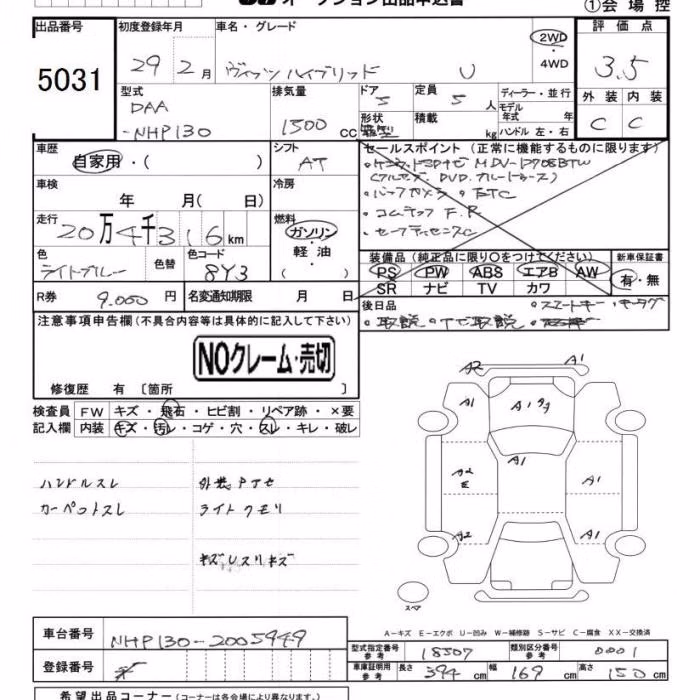 オークション出品申込書
①会場控
出品番号 初度登録年月 車名・グレード 評価点
5031
29年 2月 ヴィッツ ハイブリッド U
2WD
・
4WD
3.5
型式 排気量 ドア 定員 ディーラー・並行 外装 内装
DAA
-NHP130
1500 cc
5
5人
モデル年式 年
形状 積載 kg ハンドル 左・右
C C
車歴 シフト セールスポイント(正常に機能するものに限ります)
自家用・( ) AT
MDV-D708BTW
DVD.
車検 冷房
年 月( 日)
・バックカメラ ・ETC
走行 燃料
20万4千316km
ガソリン・軽油・( )
・コムテック F.R
・セーフティセンスC
色 色替 色コード
ライトブルー 8Y3
装備品(純正品に限り○をつけてください) 新車保証書
PS PW ABS エアB AW
SR ナビ TV カワ
有・無
R券 9.000円 名変通知期限 月 日
後日品
・スマートキー
・取説 ・ナビ取説
注意事項申告欄(不具合内容等は具体的に記入して下さい)
NOクレーム・売切
修復歴 有〔箇所 〕
検査員記入欄
FW キズ・飛石・ヒビ割・リペア跡・×要
内装 キズ・汚レ・コゲ・穴・スレ・キレ・破レ
A2 A1
A1 A1
A1
A2
E
A1
A2 A1
ハンドルスレ 外装
カーペットスレ ライトクモリ
キズUスリキズ
スペア
A−キズ E−エクボ U−凹み W−補修跡 S−サビ C−腐食 XX−交換済
車台番号 NHP130-2005949
型式指定番号参考 18507 類別区分番号参考 0001
登録番号
車庫証明用参考 長さ 394cm 幅 169cm 高さ 150cm
希望出品コーナー(コーナーは各会場により異なります。)